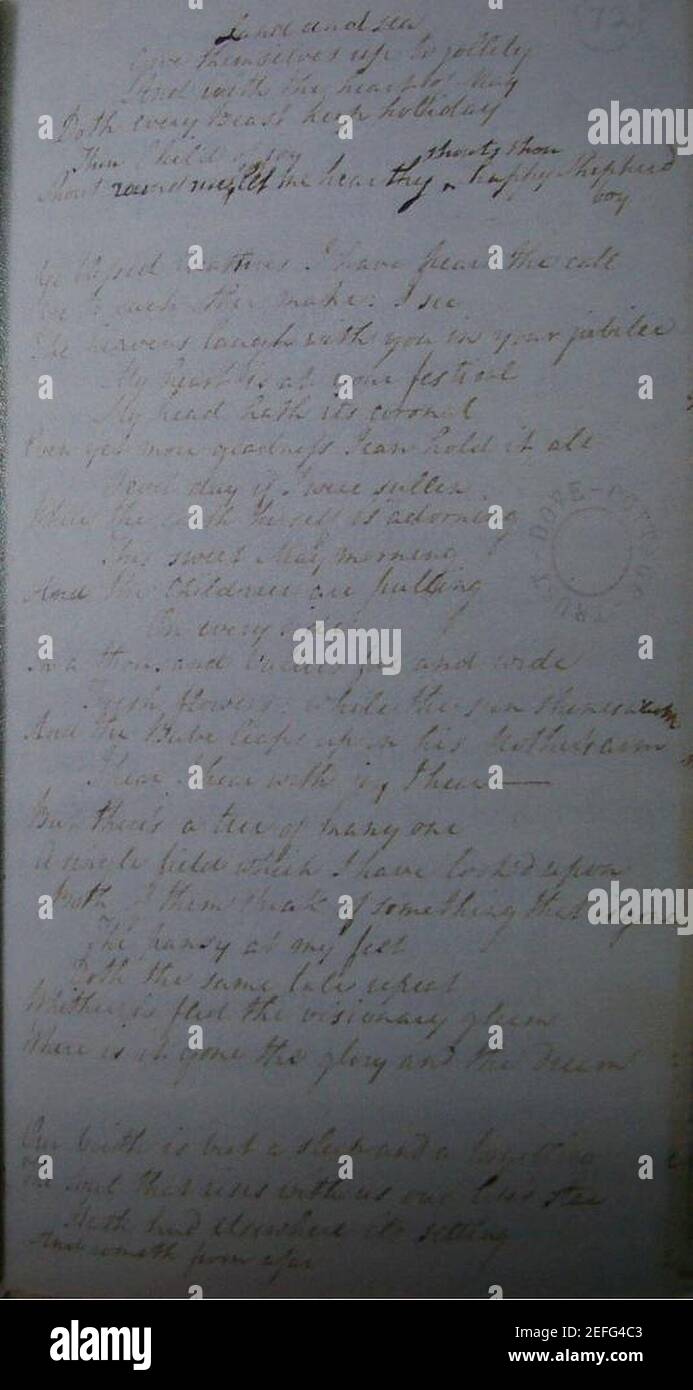 72
Land and sea
Give themselves up to jollity
And with the heart of May
Doth every Beast keep holliday
Thou Child of joy
Shout round me, let me hear thy shouts thou happy Shepherd
boy
Ye blessed creatures I have hear the call
Ye to each other make: I see
The heavens laugh with you in your jubilee
My heart is at your festival
My head hath its coronal
Even yet more gladness I can hold it all
O evil day if I were sullen
While the earth herself is adorning
This sweet May morning
And the Children are pulling
On every side
In a thousand vallies far and wide
Fresh flowers: while the sun shines warm
And the Babe leaps up on his Mother's arm
I hear I hear with joy I hear —
But there's a tree of many one
A single field which I have look'd upon
Both of them speak of something that is gone
The pansy at my feet
Doth the same tale repeat
Whither is fled the visionary gleam
Where is it gone the glory and the dream
Our birth is but a sleep and a forgetting
The soul that rises with us our life's star
Hath had elsewhere its setting
And cometh from afar
DOVE-COTTAGE-TRUST
a alamy
alamy
Image ID: 2EFG4C3
www.alamy.com